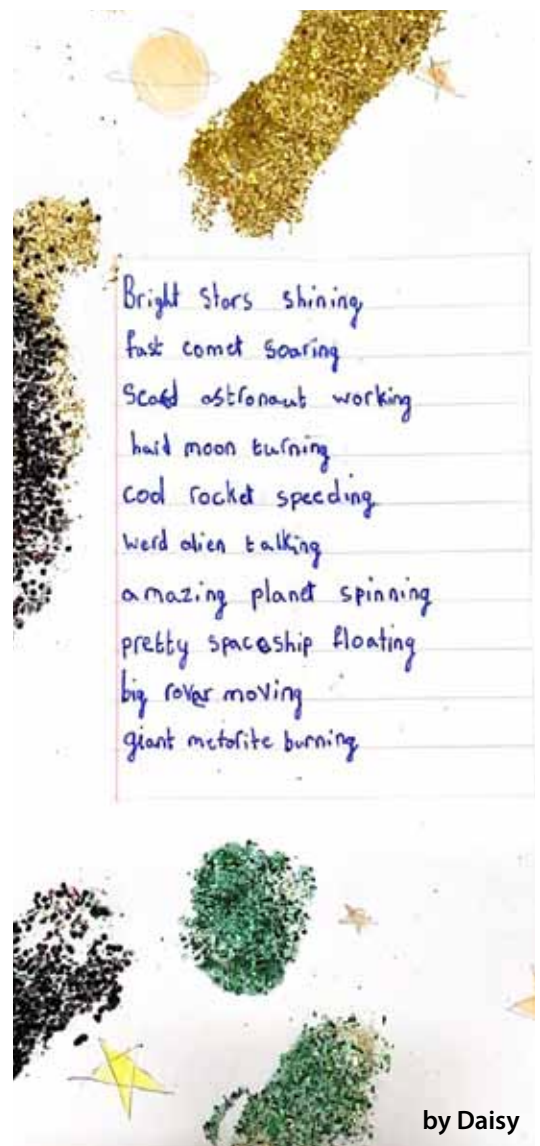 Bright stars shining
fast comet soaring
astronaut working
hard moon turning
cool rocket speeding
werd alien talking
amazing planet spinning
pretty spaceship floating
big rover moving
giant metorite burning
by Daisy